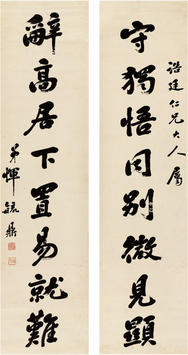 誥廷仁兄大人屬
守獨悟同別微見顯
辭高居下置易就難
弟惲毓鼎